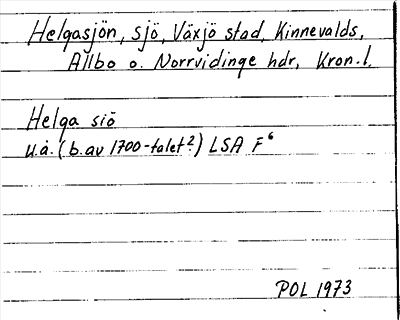 Helgasjön, sjö, Växjö stad, Kinnevalds,
Allbo o. Norrvidinge hdr, Kron. l.
Helga siö
u.å. (b. av 1700-talet?) LSA F⁶
POL 1973